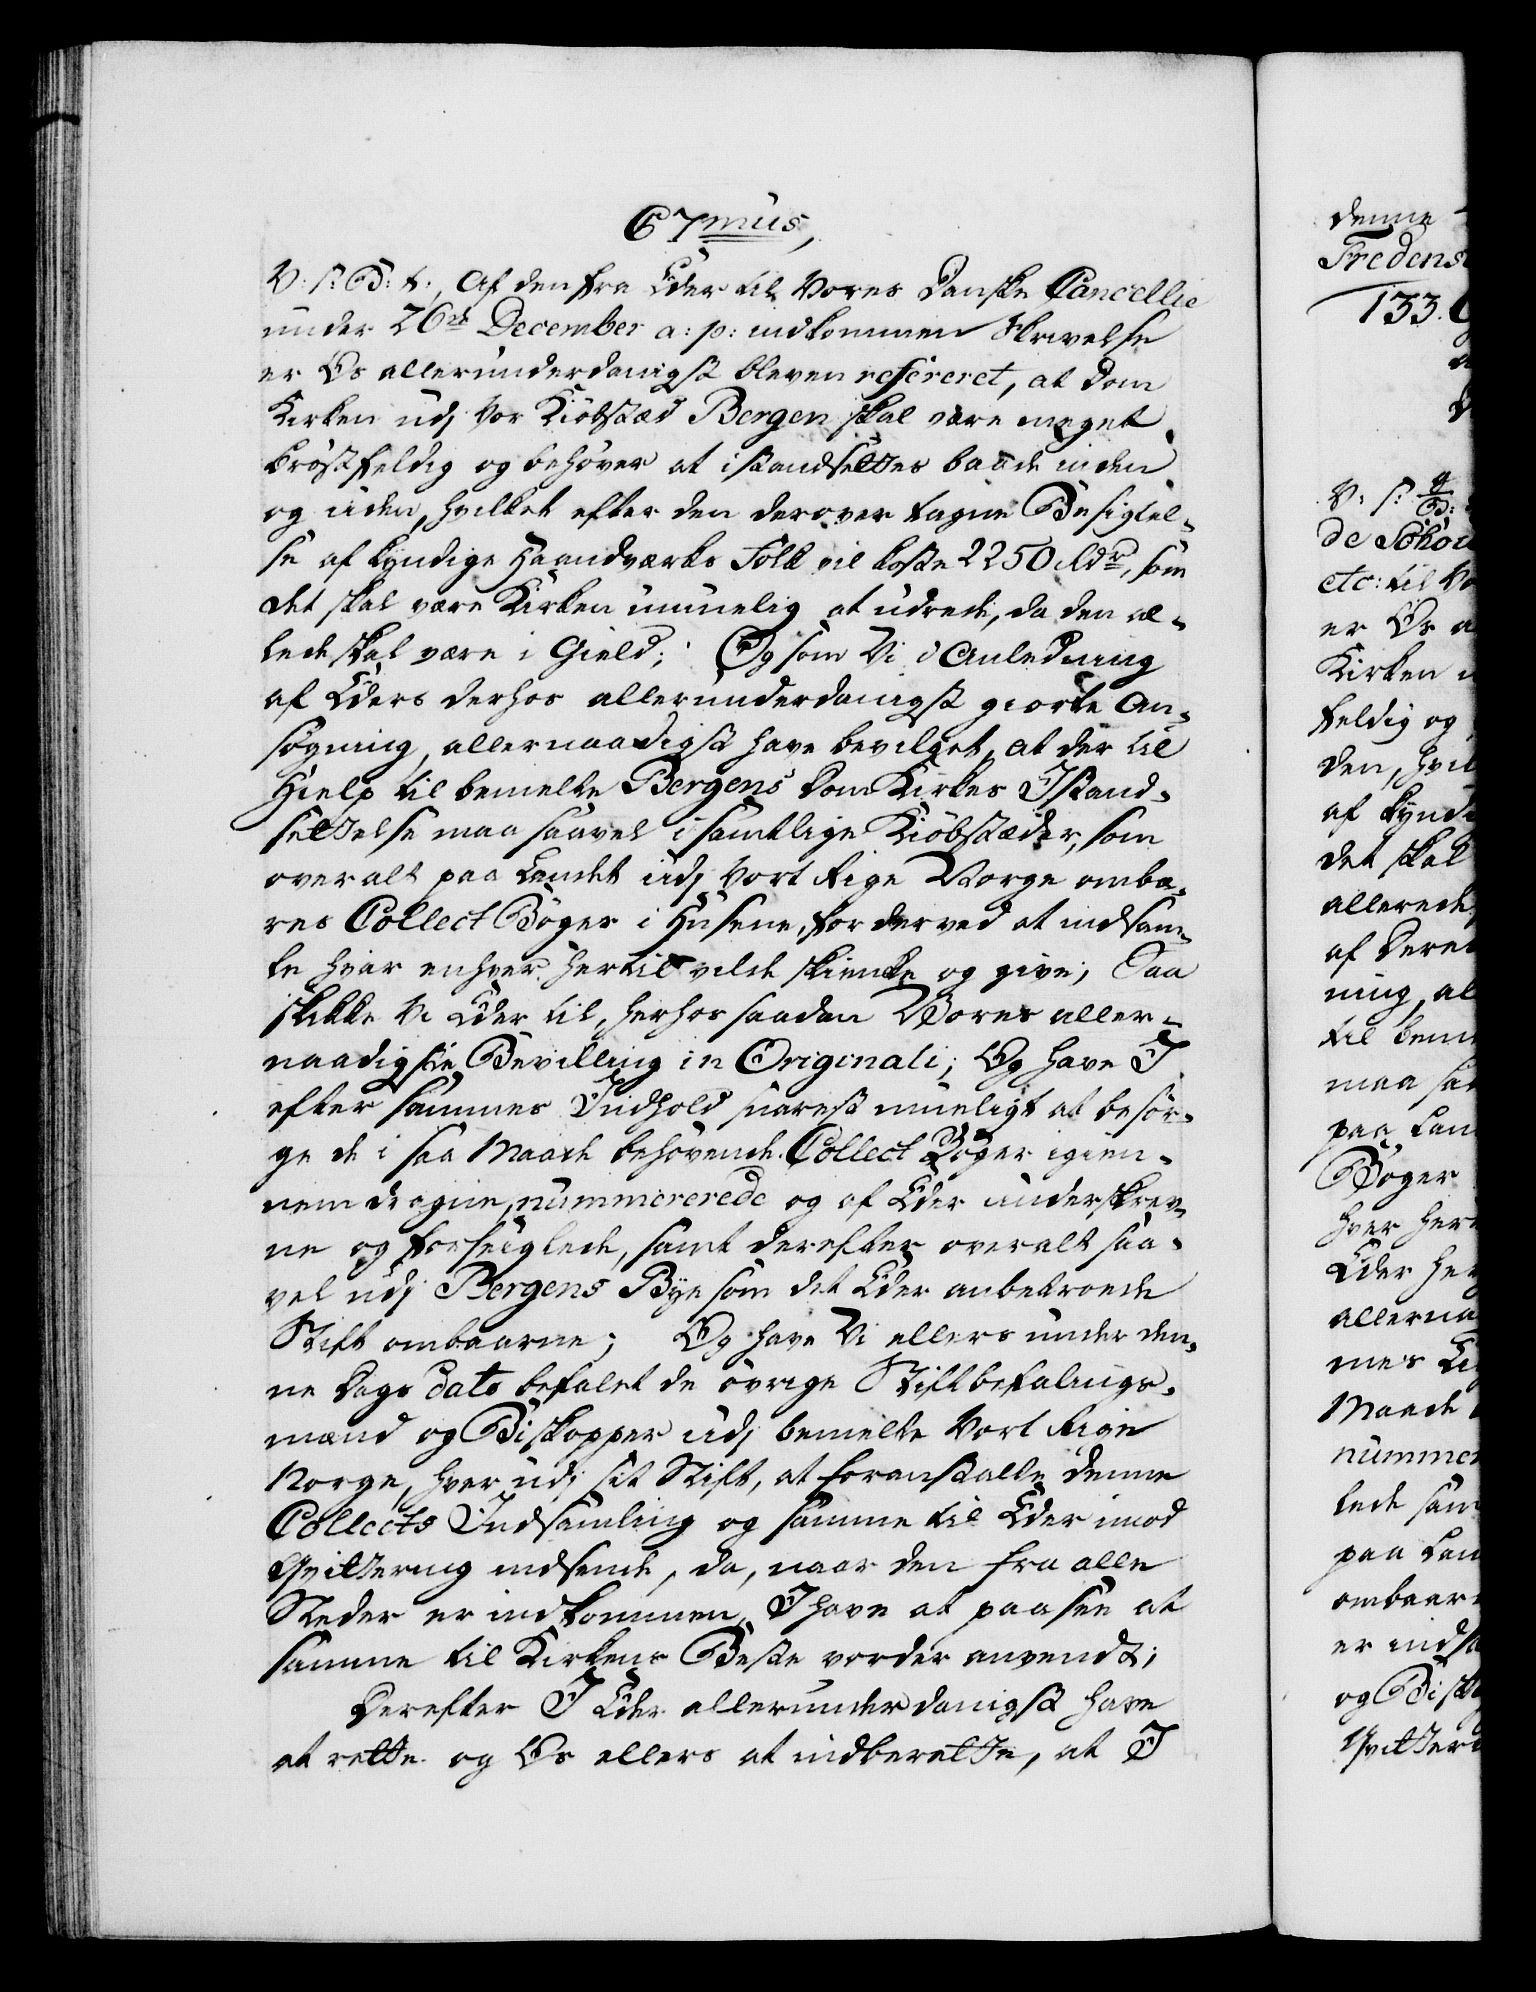 C7mus,
V: s: B: t:, Af den fra Eder til Vores Danske Cancellie
under 26de December a: p: indkommen Skrivelse
er Os allerunderdanigst bleven refereret, at Dom
Kirken udj Vor Kiöbstæd Bergen skal være meget
bröstfeldig og behöver at istandsættes baade inden
og uden, hvilket efter den derover tagne Besigtel-
se af kyndige Haandværks Folk vil koste 2250 Rdr, som
det skal være Kirken umuelig at udrede, da den al-
lede skal være i Gield; Og som Vi i Anledning
af Eders derhos allerunderdanigst giorte An-
sögning, allernaadigst have bevilget, at der til
Hielp til bemelte Bergens Dom Kirkes Istand-
settelse maa saavel i samtlige Kiöbstæder, som
overalt paa Landet udj Vort Rige Norge ombæ-
res Collect Böger i Husene, for derved at indsam-
le hvar enhver hertil vilde skienke og give; Saa
skikke Vi Eder til, herhos saadan Vores aller-
naadigste Bevilling in Originali; Og have I
efter sammes Indhold snarest mueligt at besör-
ge de i saa Maade behövende Collect Böger igien-
nemdragne, nummererede og af Eder underskrev-
ne og forseiglede, samt derefter overalt saa-
vel udj Bergens Bye som det Eder anbetroede
Stift ombaarne; Og have Vi ellers under den-
ne Dags Dato befalet de övrige Stiftbefalings-
mænd og Biskopper udj bemelte Vort Rige
Norge, hver udj sit Stift, at foranstalte denne
Collects Indsamling og samme til Eder imod
Qvittering indsende, da, naar den fra alle
Steder er indkommen, I have at paasee at
samme til Kirkens Beste vorder anvendt;
Derefter I Eder allerunderdanigst have
at rette og Os ellers at indberette, at I
denne
133.
V: s:
etc: til Vo
er Os a
Kirken u
feldig og
den, hvil
af kynd
det skal
allerede
af Deres
ning, al
til bem
maa saa
paa Lan
Böger
hver her
Eder her
allerna
mes
Maade
nummer
lede sam
paa Lan
ombaar
er indk
og Bisk
Qvitter